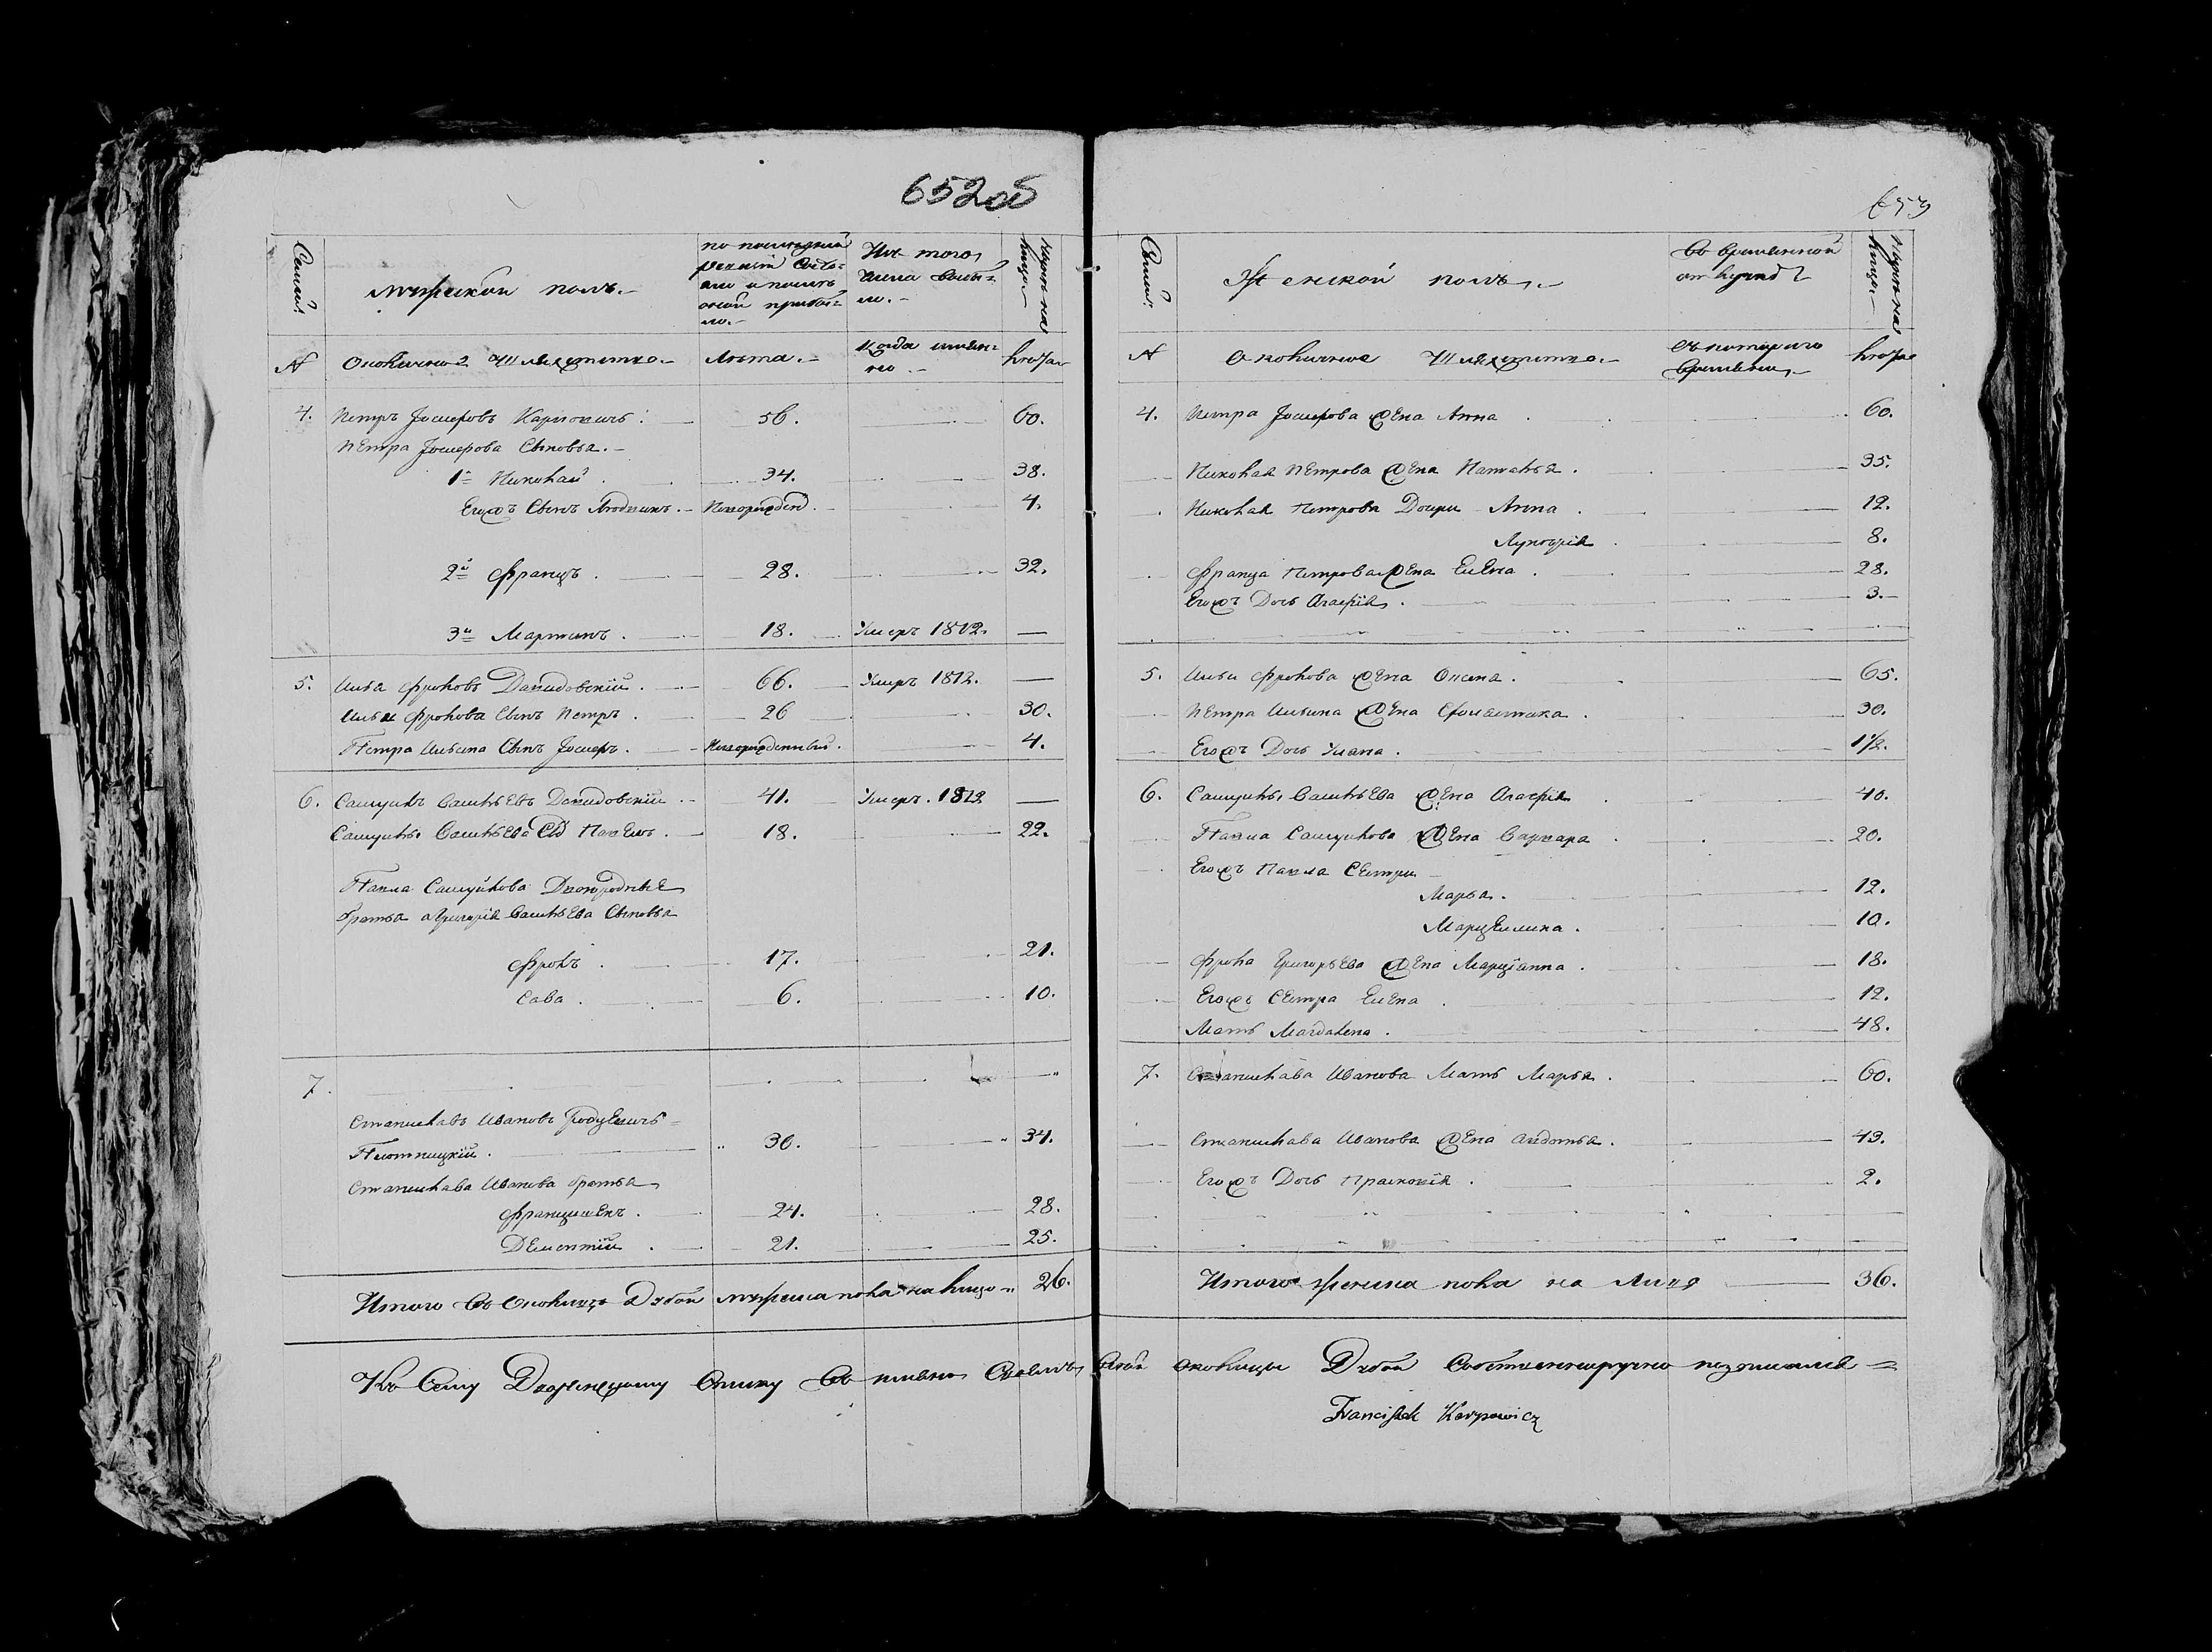 652об
Семьи.
Мужеской полъ.
по последней
ревизiи состо=
яло и после
оной прибы=
ло.
Изъ того
числа выбы=
ло.
Ныне на
лицо.
№
Околичная Шляхта.
Лета.
Когда имян=
но
4. Петръ Iосифовъ Карповичъ. 56. 60.
Петра Iосифова Сыновья.
1й Николай. 34. 38.
Егожъ Сынъ Людвикъ. Новорожден. 4.
2й Францъ. 28. 32.
3й Мартинъ. 18. Умеръ 1812. —
5. Илья Фроловъ Давидовскiй. 66. Умеръ 1812. —
Ильи Фролова Сынъ Петръ. 26 30.
Петра Ильина Сынъ Iосифъ. Новорожденный. 4.
6. Самуилъ Васильевъ Давидовскiй. 41. Умеръ. 1812 —
Самуилы Васильева Сынъ Павелъ. 18. 22.
Павла Самуйлова Двоюродные
братья Григорiя Васильева Сыновья
Фролъ. 17. 21.
Сава. 6. 10.
7.
Станиславъ Ивановъ
Плотницкiй. 30. 34.
Станислава Иванова братья
Францишекъ. 24. 28.
Дементiй. 21. 25.
Итого въ Околице Дубой мужеска пола на лицо 26.
653
Семьи.
Женской полъ.
Во временной
отлучке
Ныне на
лицо.
№
Околичная Шляхта.
Съ котораго
времени.
4. Петра Iосифова жена Анна. 60.
Николая Петрова жена Наталья. 35.
Николая Петрова Дочри Анна. 12.
8.
Франца Петрова жена Елена. 28.
Егожъ Дочь Агафiя. 3.
5. Ильи Фролова жена Оксена. 65.
Петра Ильина жена 30.
Егожъ Дочь Уляна. 1 1/2.
6. Самуилы Васильева жена Агафiя 40.
Павла Самуилова жена Варвара. 20.
Егожъ Павла Сестры
Марья. 12.
Марцелина. 10.
Фрола Григорьева жена Марцiанна. 18.
Егожъ Сестра Елена 12.
Мать Магдалена. 48.
7. Станислава Иванова Мать Марья. 60.
Станислава Иванова жена Авдотья. 43.
Егожъ Дочь Прасковiя. 2.
Итого женска пола на Лицо 36.
Къ Сему Дворянскому Списку въ околицы Дубой Собственноручно подписался =
Franciszek Karpowicz